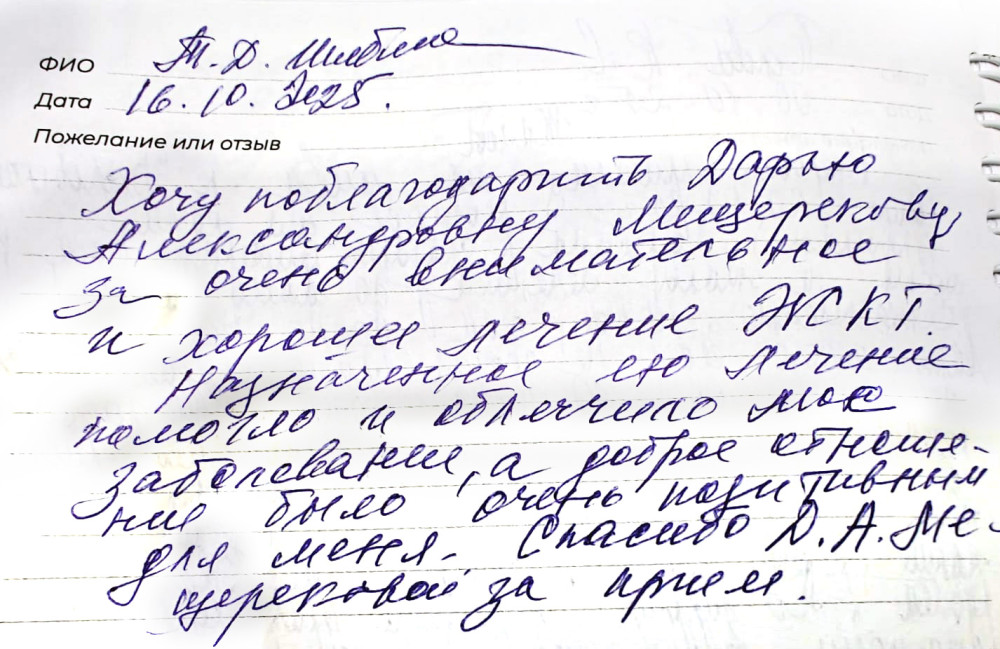 ФИО Т. Д.
Дата 16.10.2025.
Пожелание или отзыв
Хочу поблагодарить Дарью
Александровну Мищерекову,
за очень внимательное
и хорошее лечение ЖКТ.
Назначенное ею лечение
помогло и облегчило мое
заболевание, а доброе отноше-
ние было очень позитивным
для меня. Спасибо Д. А. Ме-
щерековой за прием.